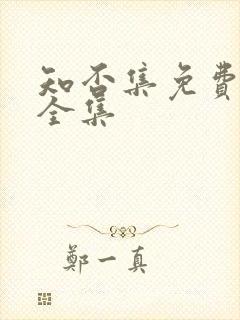 知否集免費
全集
鄭一真